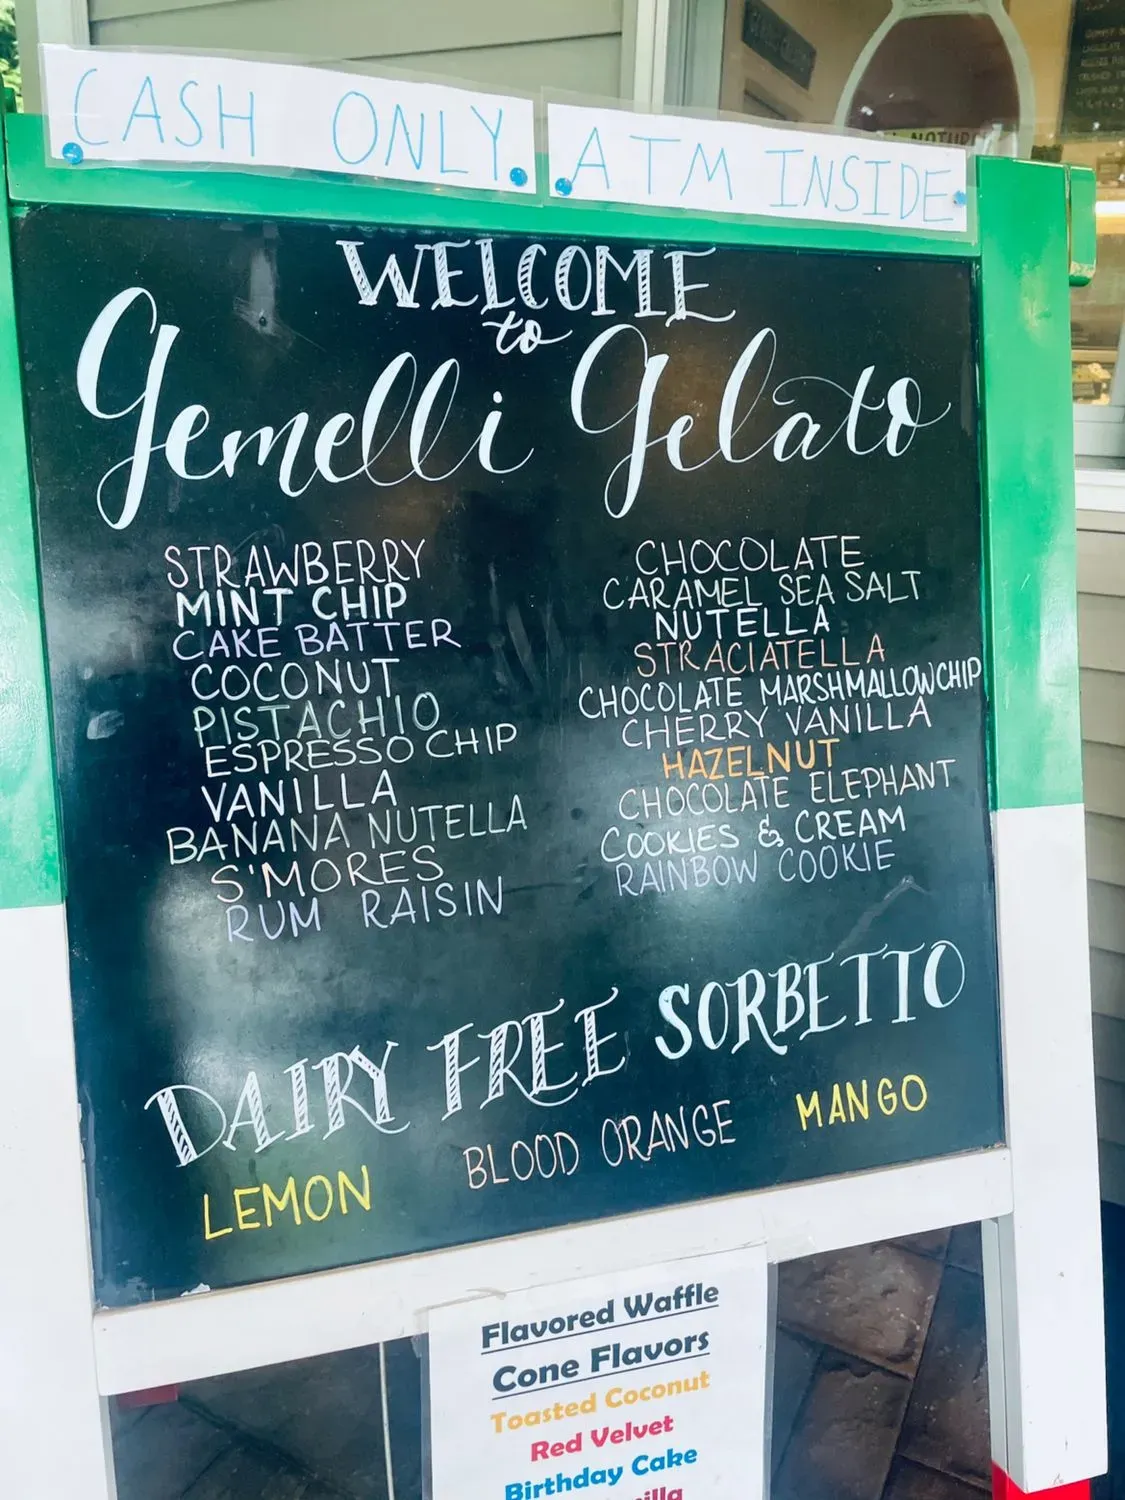 CASH ONLY. ATM INSIDE
WELCOME
to
Gemelli Gelato
STRAWBERRY
MINT CHIP
CAKE BATTER
COCONUT
PISTACHIO
ESPRESSO CHIP
VANILLA
BANANA NUTELLA
S'MORES
RUM RAISIN
CHOCOLATE
CARAMEL SEA SALT
NUTELLA
STRACIATELLA
CHOCOLATE MARSHMALLOW CHIP
CHERRY VANILLA
HAZELNUT
CHOCOLATE ELEPHANT
COOKIES & CREAM
RAINBOW COOKIE
DAIRY FREE SORBETTO
LEMON BLOOD ORANGE MANGO
Flavored Waffle
Cone Flavors
Toasted Coconut
Red Velvet
Birthday Cake